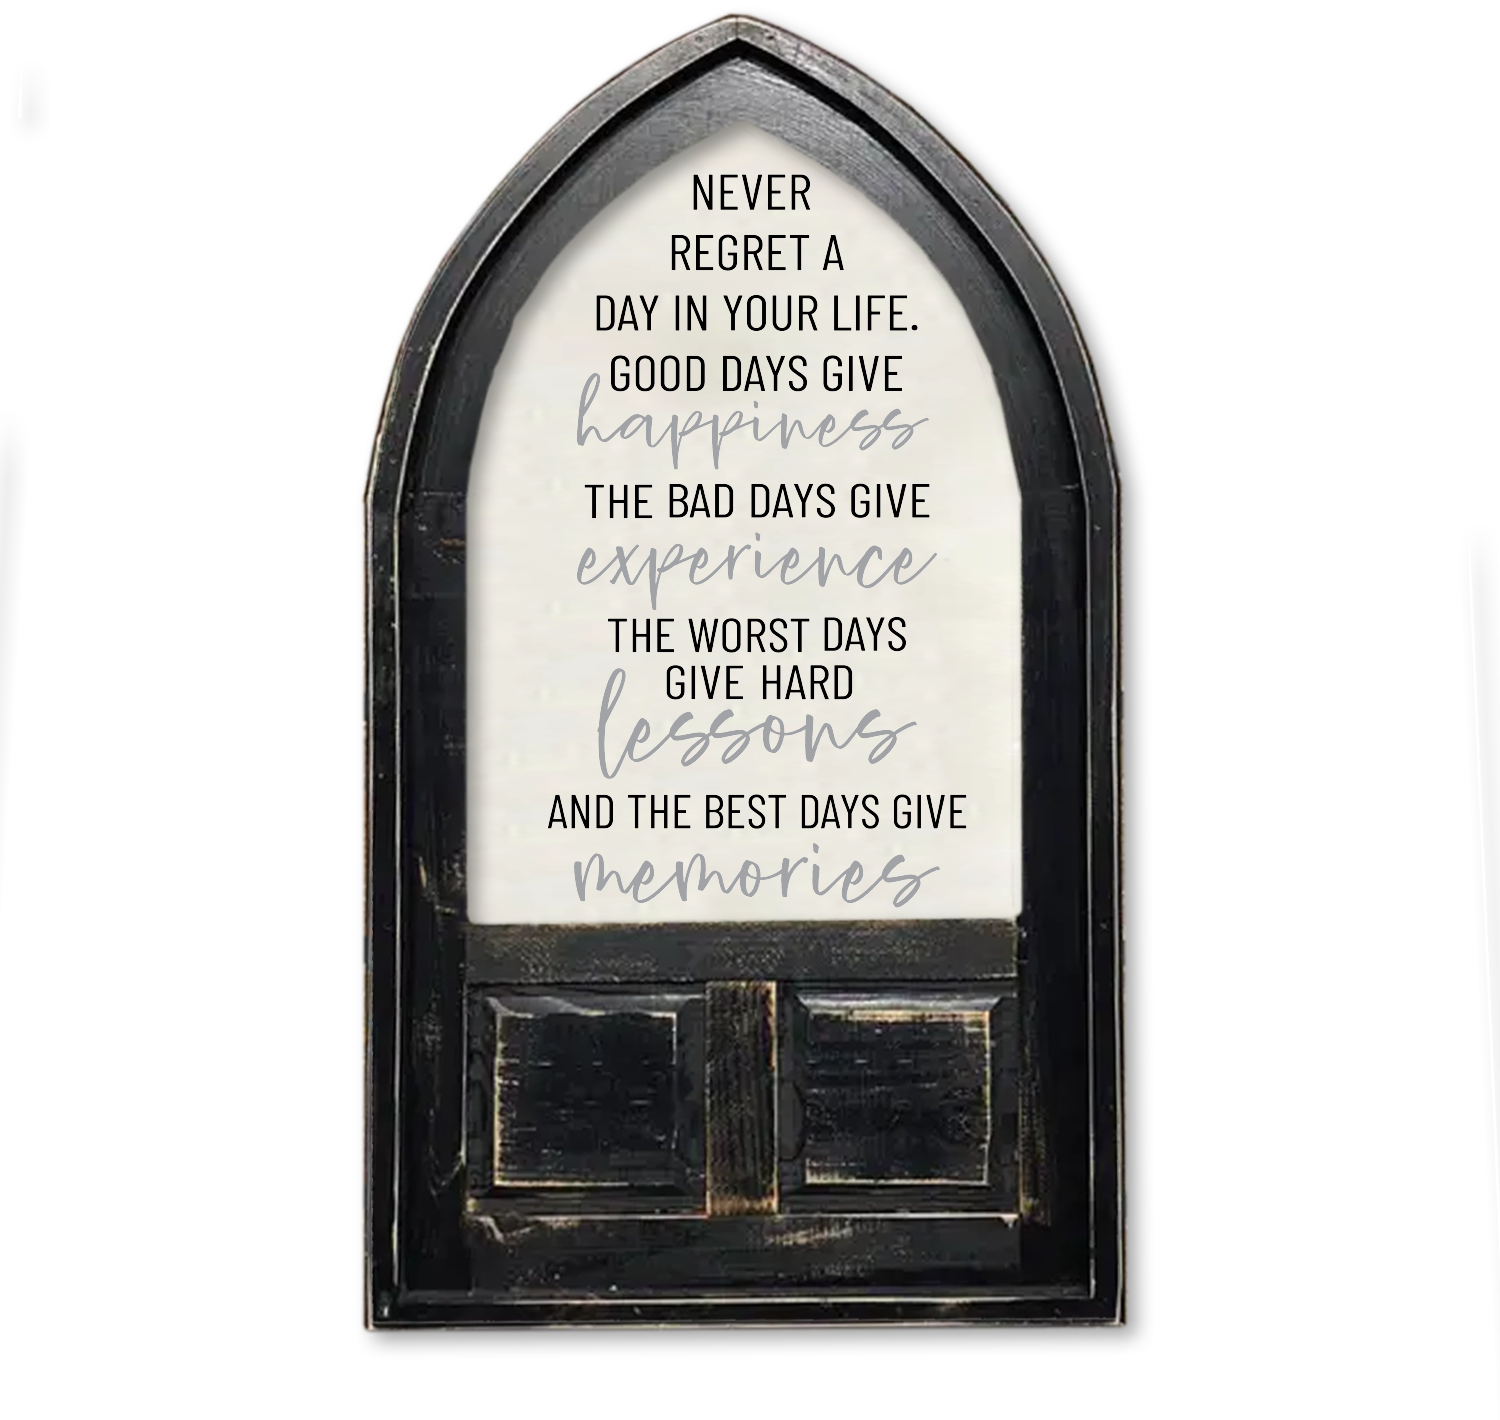 NEVER
REGRET A
DAY IN YOUR LIFE.
GOOD DAYS GIVE
happiness
THE BAD DAYS GIVE
experience
THE WORST DAYS
GIVE HARD
lessons
AND THE BEST DAYS GIVE
memories